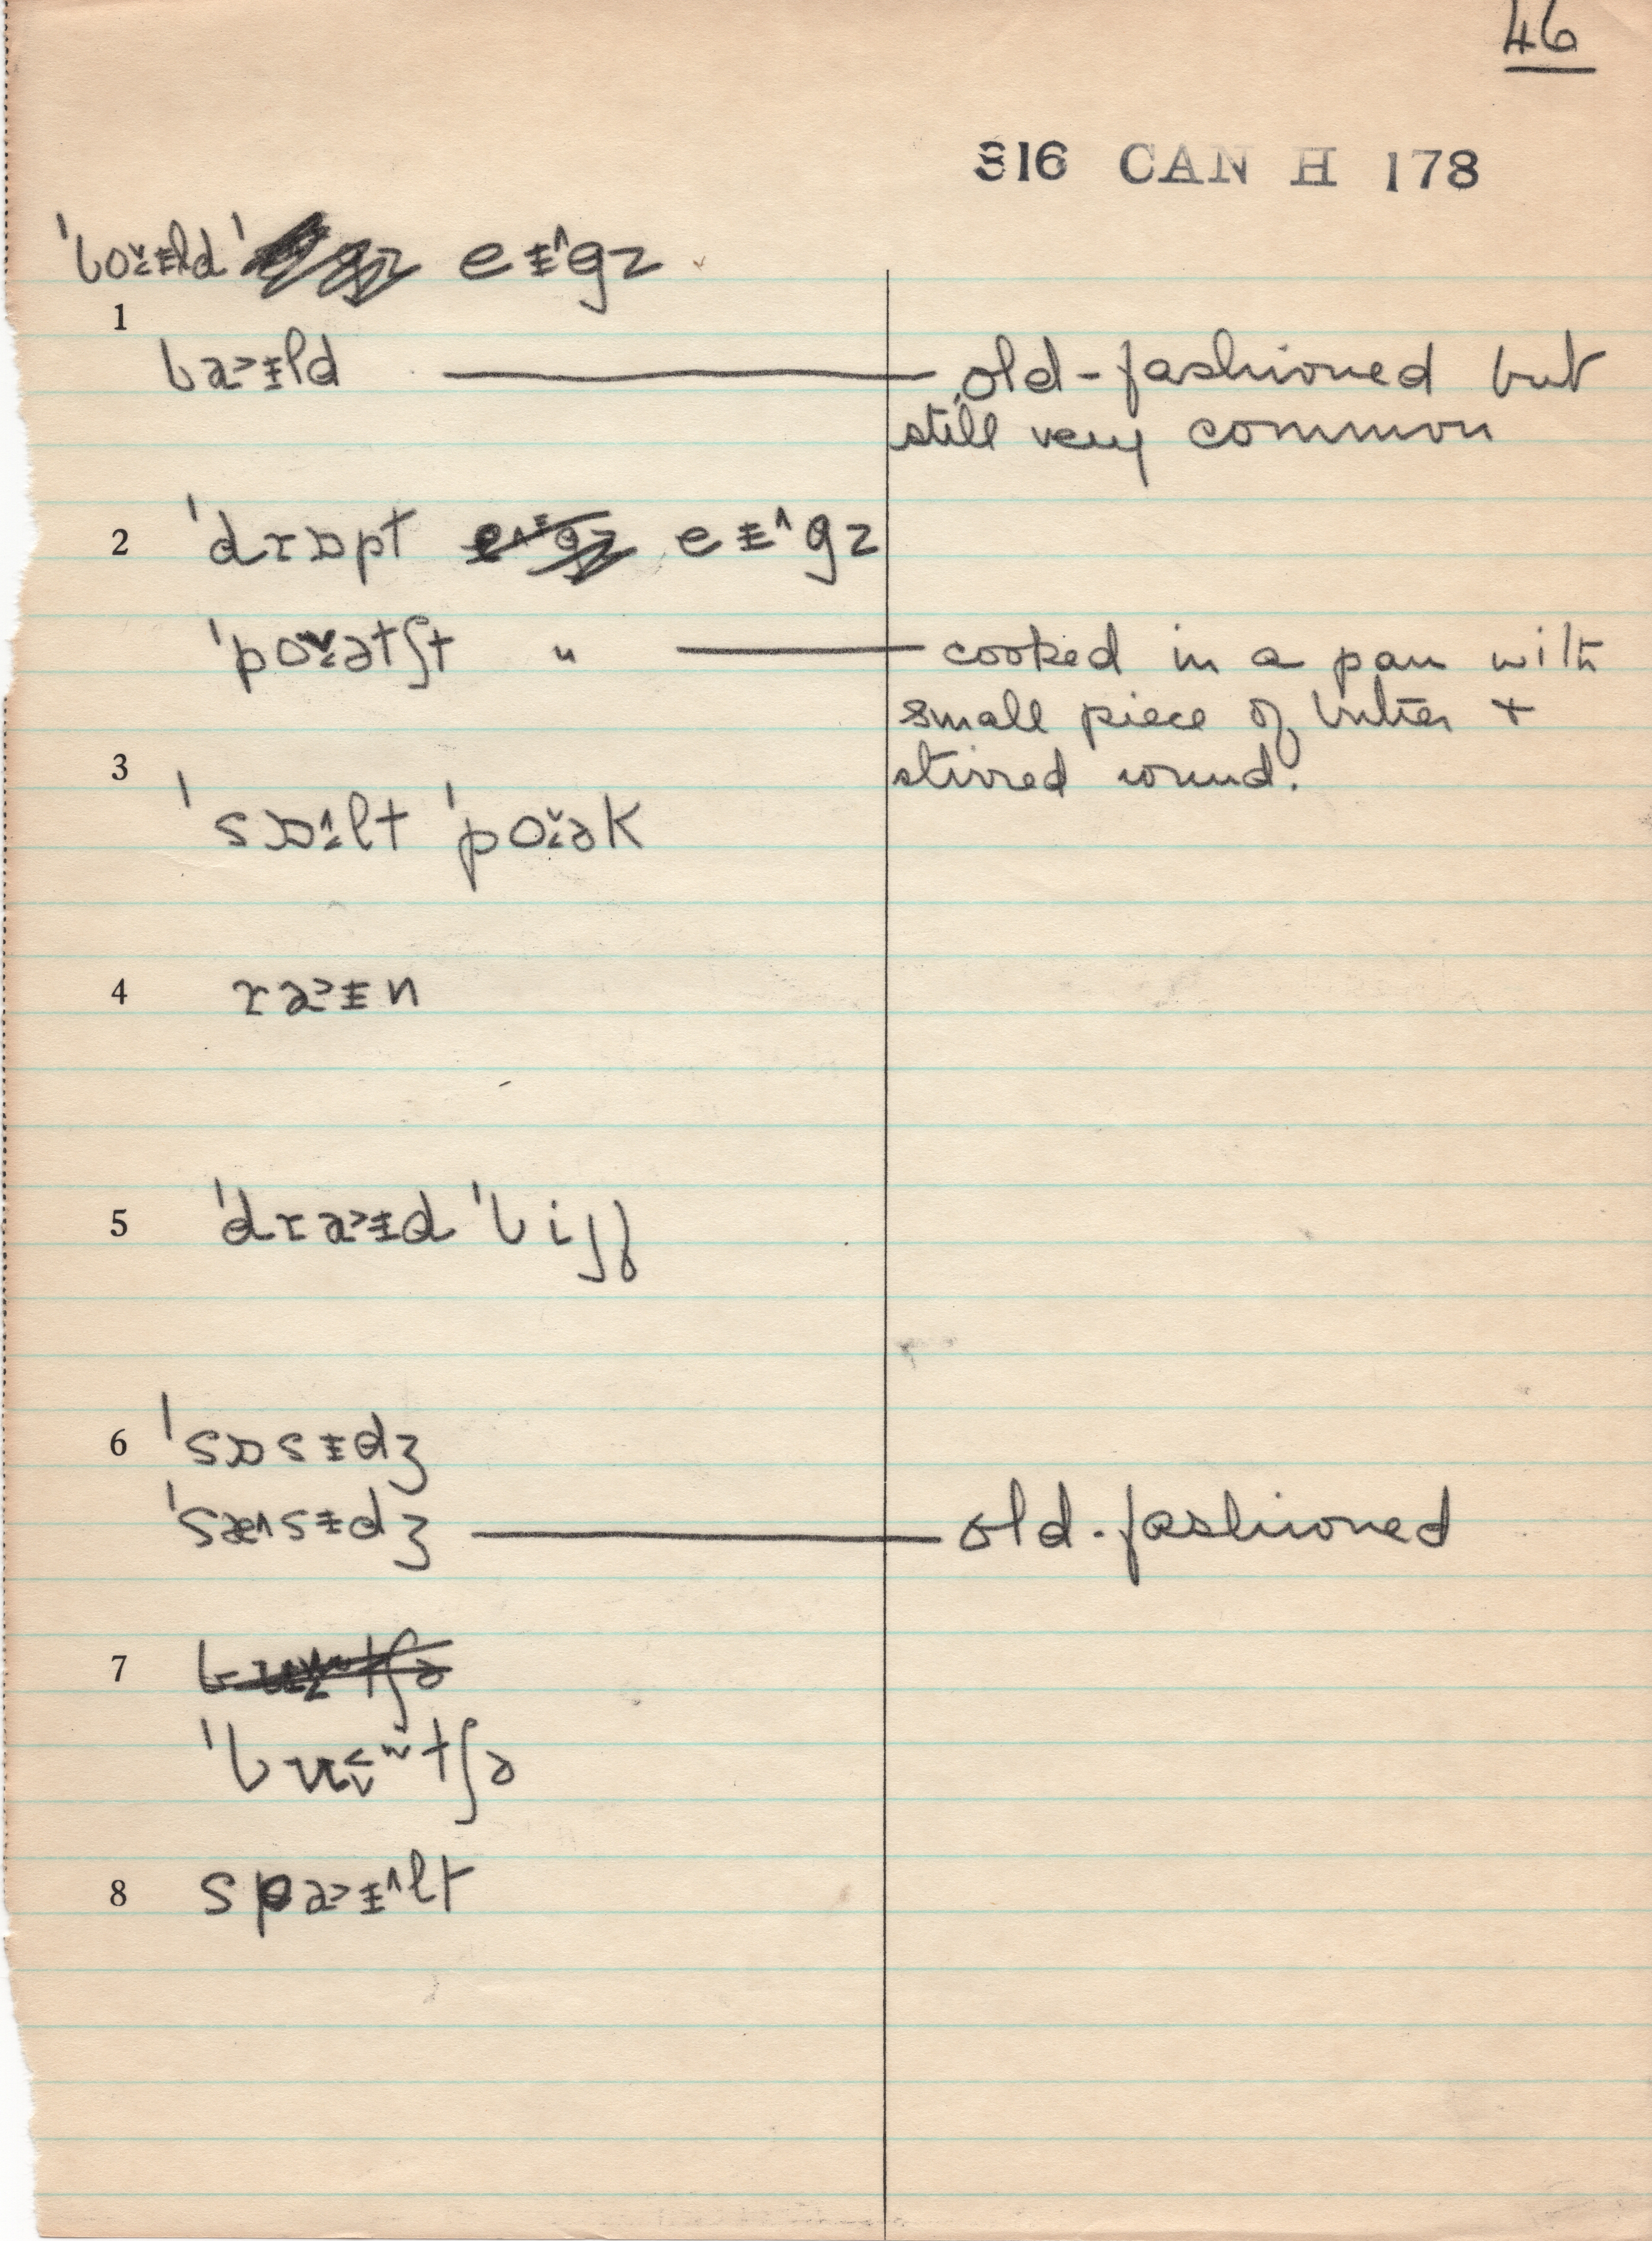 46
316 CAN H 178
ˈbǒ̞ɪ̵ld ˈ eɪ̵^gz
1
baɪ̵ld old-fashioned but
still very common
2 ˈdrɒpt eɪ̵^gz
ˈpǒ̞ətʃt " cooked in a pan with
small piece of butter +
stirred round.
3
ˈsɒ̞^lt ˈpǒ̞ək
4 ra˃ɪ̵n
5 ˈdra˃ɪ̵d ˈbijf
6 ˈsɒsɪ̵dʒ
ˈsæ^sɪ̵dʒ old-fashioned
7
ˈbʊtʃə
8 spa˃ɪ̵^lt